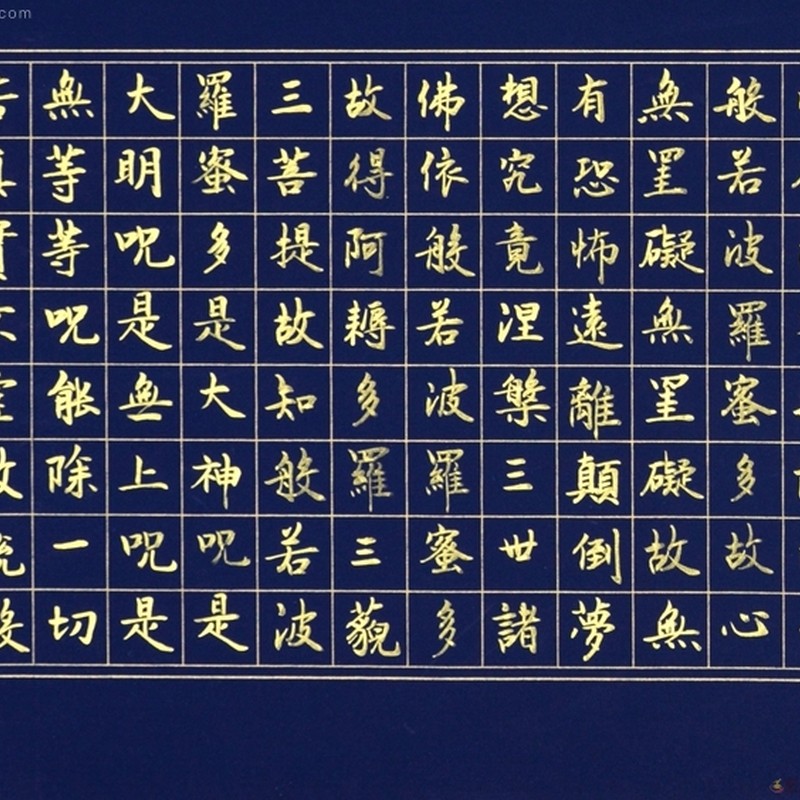 般若波羅蜜多故心
無罣礙無罣礙故無
有恐怖遠離顛倒夢
想究竟涅槃三世諸
佛依般若波羅蜜多
故得阿耨多羅三藐
三菩提故知般若波
羅蜜多是大神呪是
大明呪是無上呪是
無等等呪能除一切
.com